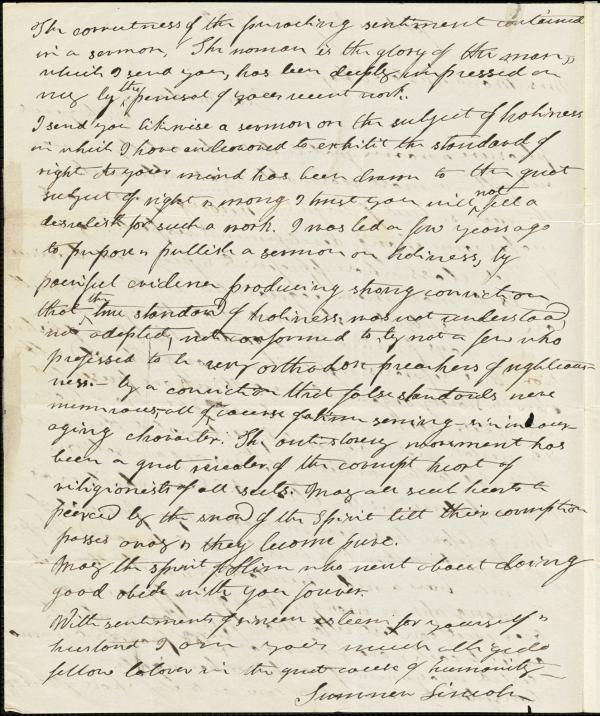 The correctness of the preceding sentiment contained
in a sermon, The woman is the glory of the man,"
which I send you, has been deeply impressed on
me by the perusal of your recent work.
I send you likewise a sermon on the subject of holiness
in which I have endeavored to exhibit the standard of
right. As your mind has been drawn to the great
subject of right & wrong I trust you will not feel a
disrelish for such a work. I was led a few years ago
to prepare & publish a sermon on holiness, by
painful evidence producing strong conviction
that the true standard of holiness was not understood,
not adopted, not conformed to, by not a few who
professed to be very orthodox preachers of righteous-
ness.— by a conviction that false standards were
numerous—all of course of a time serving—sin
aging character. The anti slavery movement has
been a great revealer of the corrupt heart of
religionists of all sects. May all such hearts be
pierced by the sword of the Spirit till their corruption
passes away & they become pure.
May the spirit of Him who went about doing
good abide with you forever.
With sentiments of sincere esteem for yourself &
husband I am your much obliged
fellow laborer in the great cause of humanity—
Sumner Lincoln